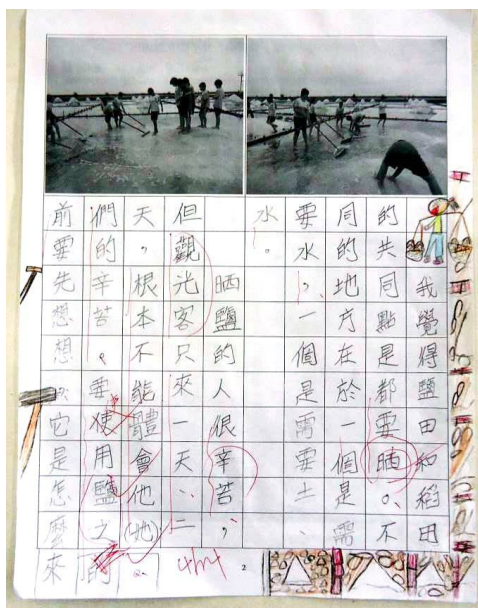 我覺得鹽田和稻田
的共同點是都要晒。不
同的地方在於一個是需
要水、一個是需要土、
水。
晒鹽的人很辛苦，
但觀光客只來一天、二
天，根本不能體會他(她)
們的辛苦。要使用鹽之
前要先想想，它是怎麼來
的。
2